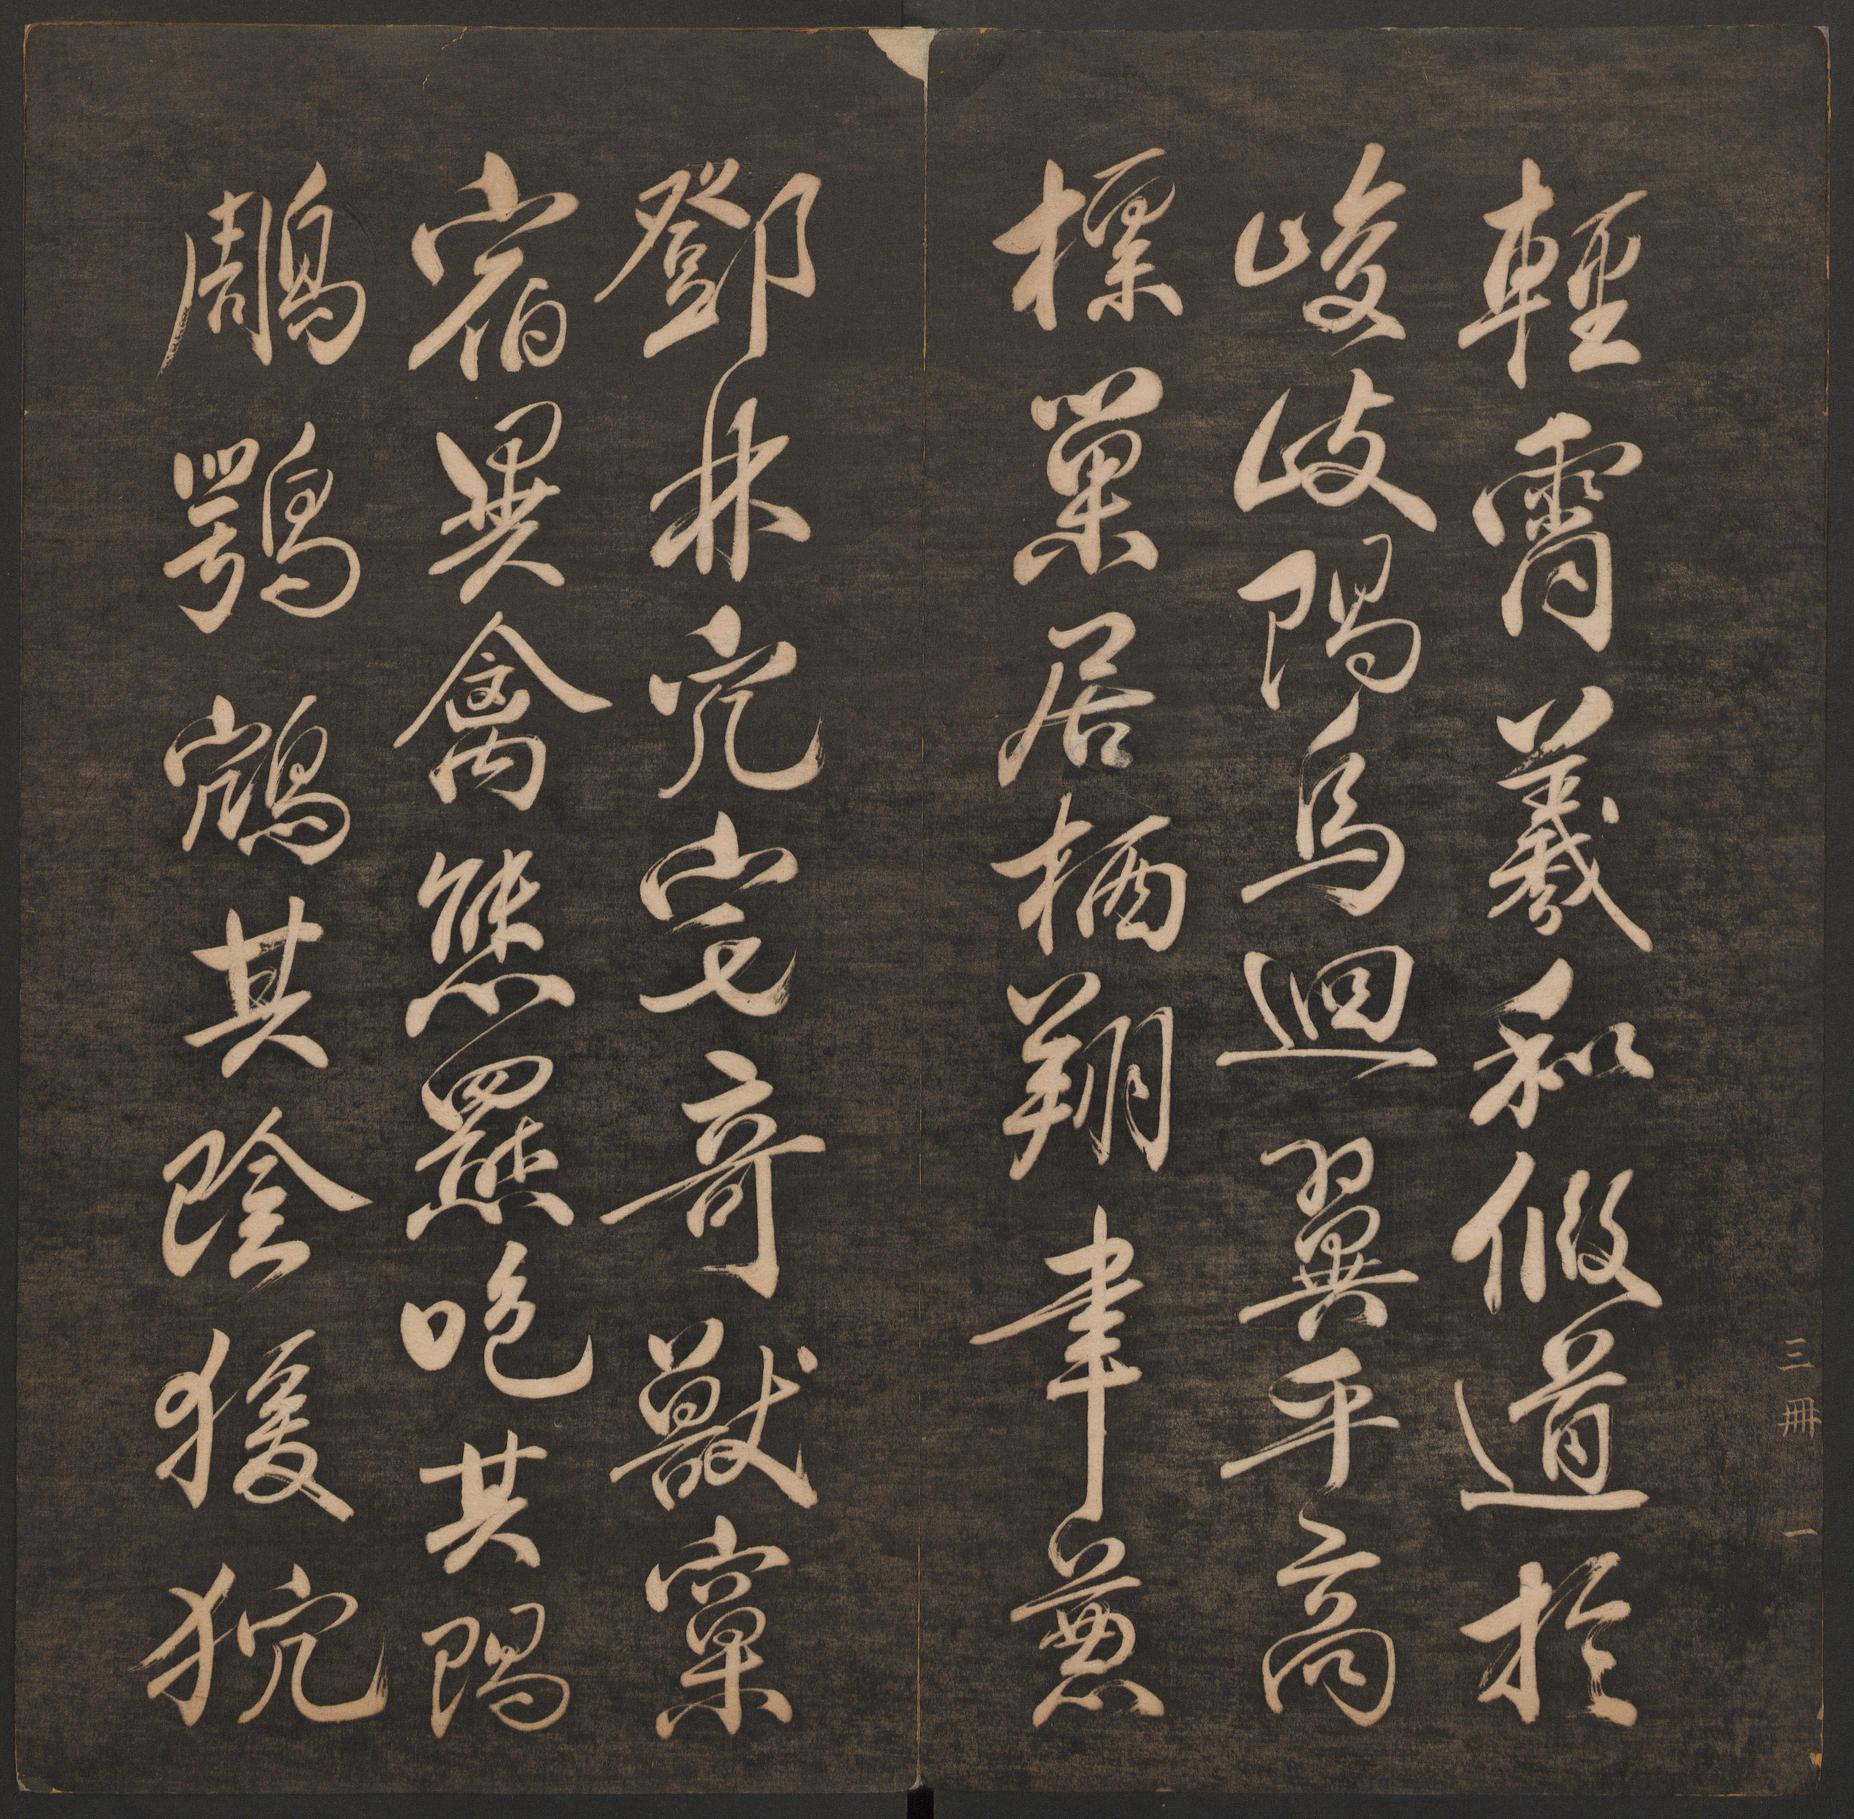 三冊 一
輕霄羲和假道於
峻岐陽烏迴翼乎高
標巢居栖翔聿兼
鄧林穴宅奇獸窠
宿異禽熊羆咆其陽
鵰鶚鴥其陰猨狖